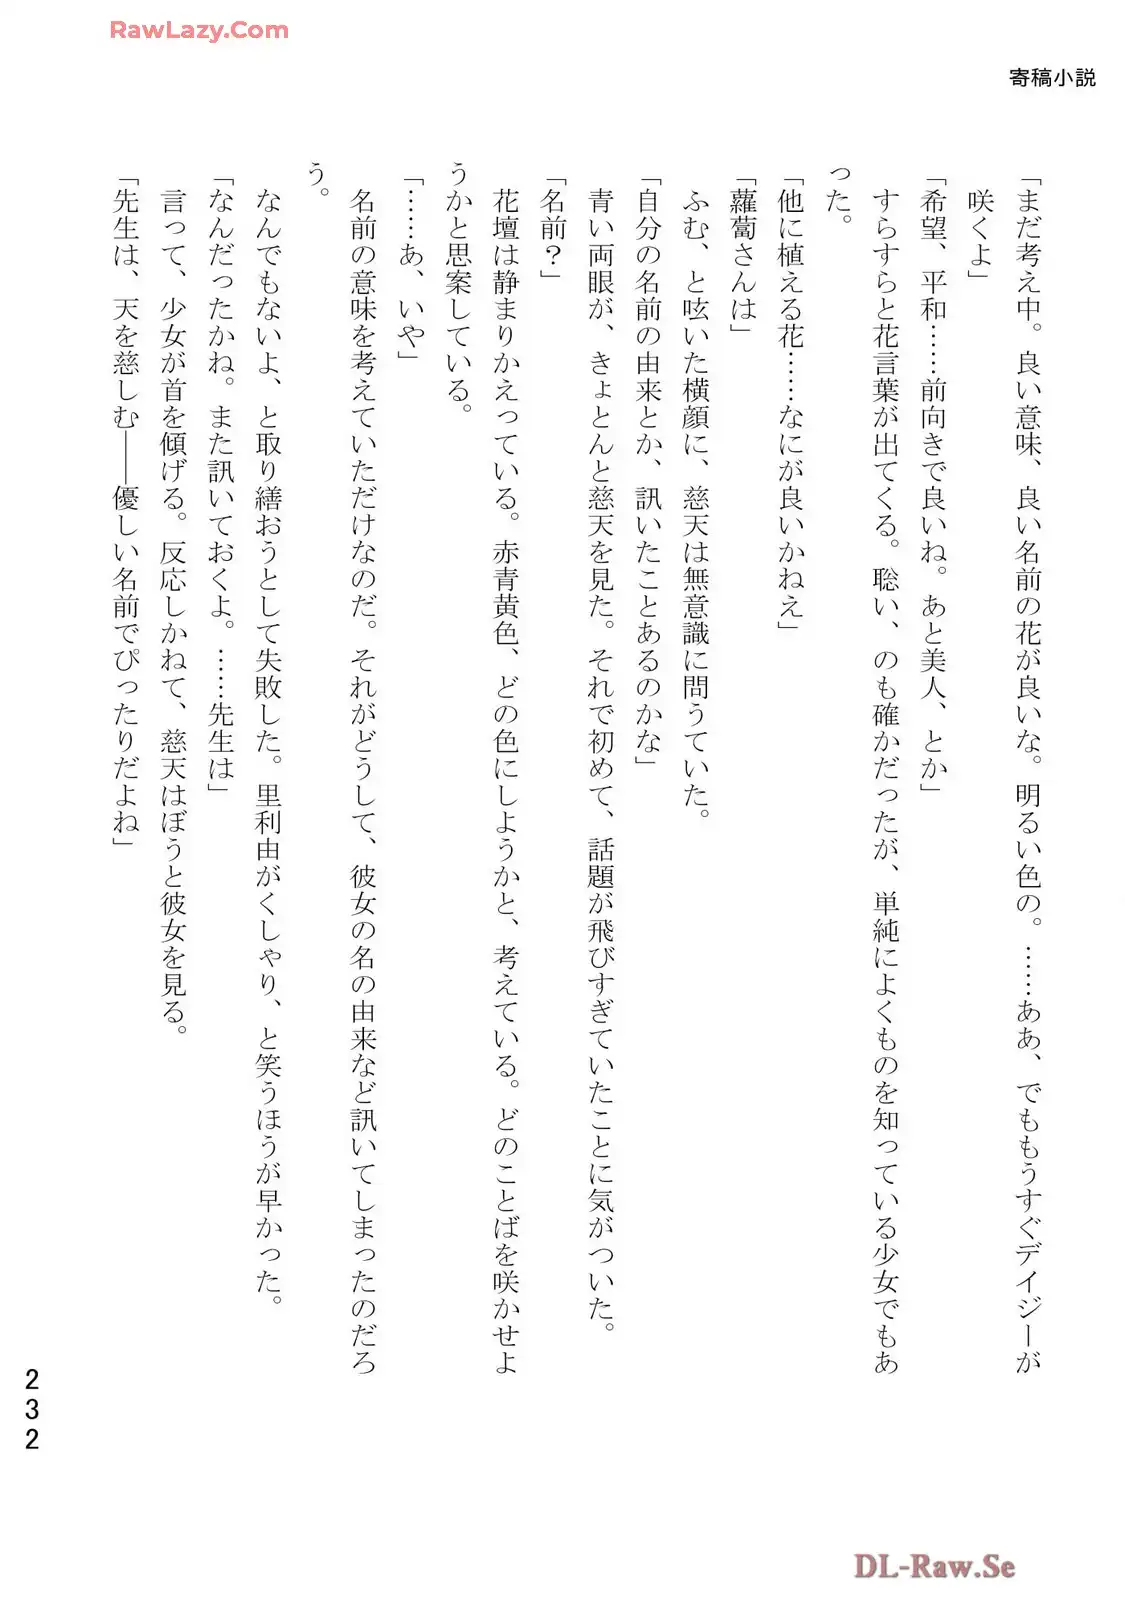 RawLazy.Com
寄稿小説
「まだ考え中。良い意味、良い名前の花が良いな。明るい色の。……ああ、でももうすぐデイジーが
咲くよ」
「希望、平和……前向きで良いね。あと美人、とか」
すらすらと花言葉が出てくる。聡い、のも確かだったが、単純によくものを知っている少女でもあ
った。
「他に植える花……なにが良いかねえ」
「蘿蔔さんは」
ふむ、と呟いた横顔に、慈天は無意識に問うていた。
「自分の名前の由来とか、訊いたことあるのかな」
青い両眼が、きょとんと慈天を見た。それで初めて、話題が飛びすぎていたことに気がついた。
「名前？」
花壇は静まりかえっている。赤青黄色、どの色にしようかと、考えている。どのことばを咲かせよ
うかと思案している。
「……あ、いや」
名前の意味を考えていただけなのだ。それがどうして、彼女の名の由来など訊いてしまったのだろ
う。
なんでもないよ、と取り繕おうとして失敗した。里利由がくしゃり、と笑うほうが早かった。
「なんだったかね。また訊いておくよ。……先生は」
言って、少女が首を傾げる。反応しかねて、慈天はぼうと彼女を見る。
「先生は、天を慈しむ――優しい名前でぴったりだよね」
232
DL-Raw.Se